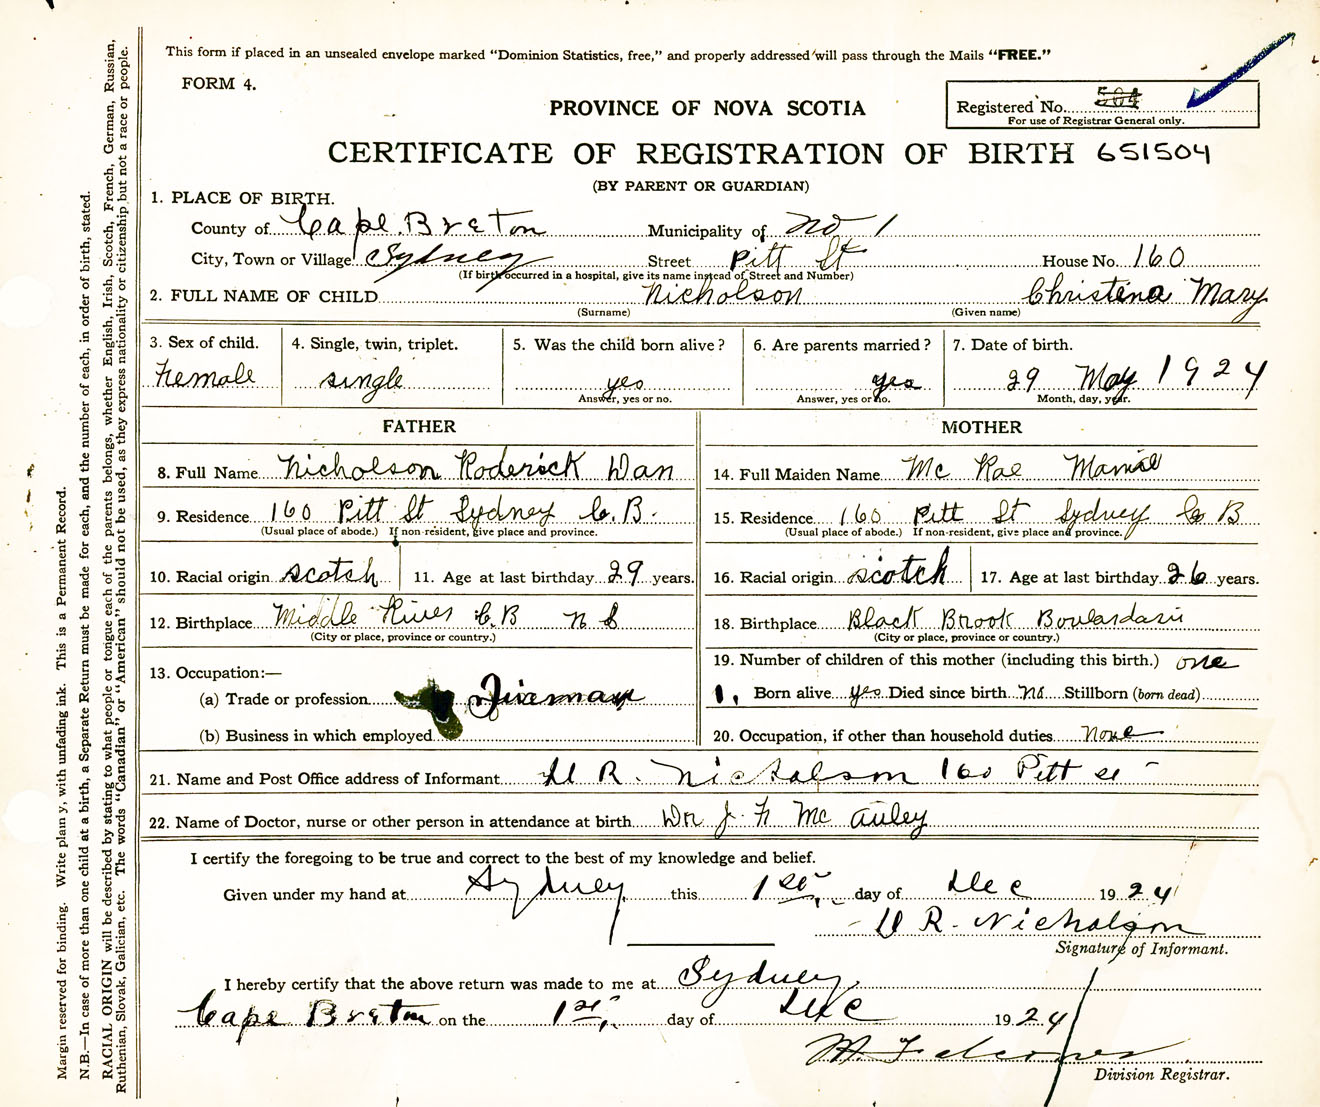 This form if placed in an unsealed envelope marked "Dominion Statistics, free," and properly addressed will pass through the Mails "FREE."
FORM 4.
PROVINCE OF NOVA SCOTIA
Registered No.
For use of Registrar General only.
CERTIFICATE OF REGISTRATION OF BIRTH 651504
(BY PARENT OR GUARDIAN)
1. PLACE OF BIRTH.
County of Cape Breton Municipality of No 1
City, Town or Village Sydney Street Pitt St House No. 160
(If birth occurred in a hospital, give its name instead of Street and Number)
2. FULL NAME OF CHILD Nicholson Christena Mary
(Surname) (Given name)
3. Sex of child. 4. Single, twin, triplet. 5. Was the child born alive? 6. Are parents married? 7. Date of birth.
Female single yes yes 29 May 1924
Answer, yes or no. Answer, yes or no. Month, day, year.
FATHER MOTHER
8. Full Name Nicholson Roderick Dan 14. Full Maiden Name Mc Rae Mamie
9. Residence 160 Pitt St Sydney C.B. 15. Residence 160 Pitt St Sydney C B
(Usual place of abode.) If non-resident, give place and province. (Usual place of abode.) If non-resident, give place and province.
10. Racial origin scotch 11. Age at last birthday 29 years. 16. Racial origin scotch 17. Age at last birthday 26 years.
12. Birthplace Middle River C.B N S 18. Birthplace Black Brook Boulardarie
(City or place, province or country.) (City or place, province or country.)
13. Occupation:— 19. Number of children of this mother (including this birth.) one
(a) Trade or profession Fireman 1. Born alive yes Died since birth no Stillborn (born dead)
(b) Business in which employed 20. Occupation, if other than household duties None
21. Name and Post Office address of Informant R. Nicholson 160 Pitt st
22. Name of Doctor, nurse or other person in attendance at birth Dr J. Mc Auley
I certify the foregoing to be true and correct to the best of my knowledge and belief.
Given under my hand at Sydney this 1st day of Dec 1924
R. Nicholson
Signature of Informant.
I hereby certify that the above return was made to me at Sydney
Cape Breton on the 1st day of Dec 1924
Division Registrar.
Margin reserved for binding. Write plainy, with unfading ink. This is a Permanent Record.
N.B.—In case of more than one child at a birth, a Separate Return must be made for each, and the number of each, in order of birth, stated.
RACIAL ORIGIN will be described by stating to what people or tongue each of the parents belongs, whether English, Irish, Scotch, French, German, Russian,
Ruthenian, Slovak, Galician, etc. The words "Canadian" or "American" should not be used, as they express nationality or citizenship but not a race or people.